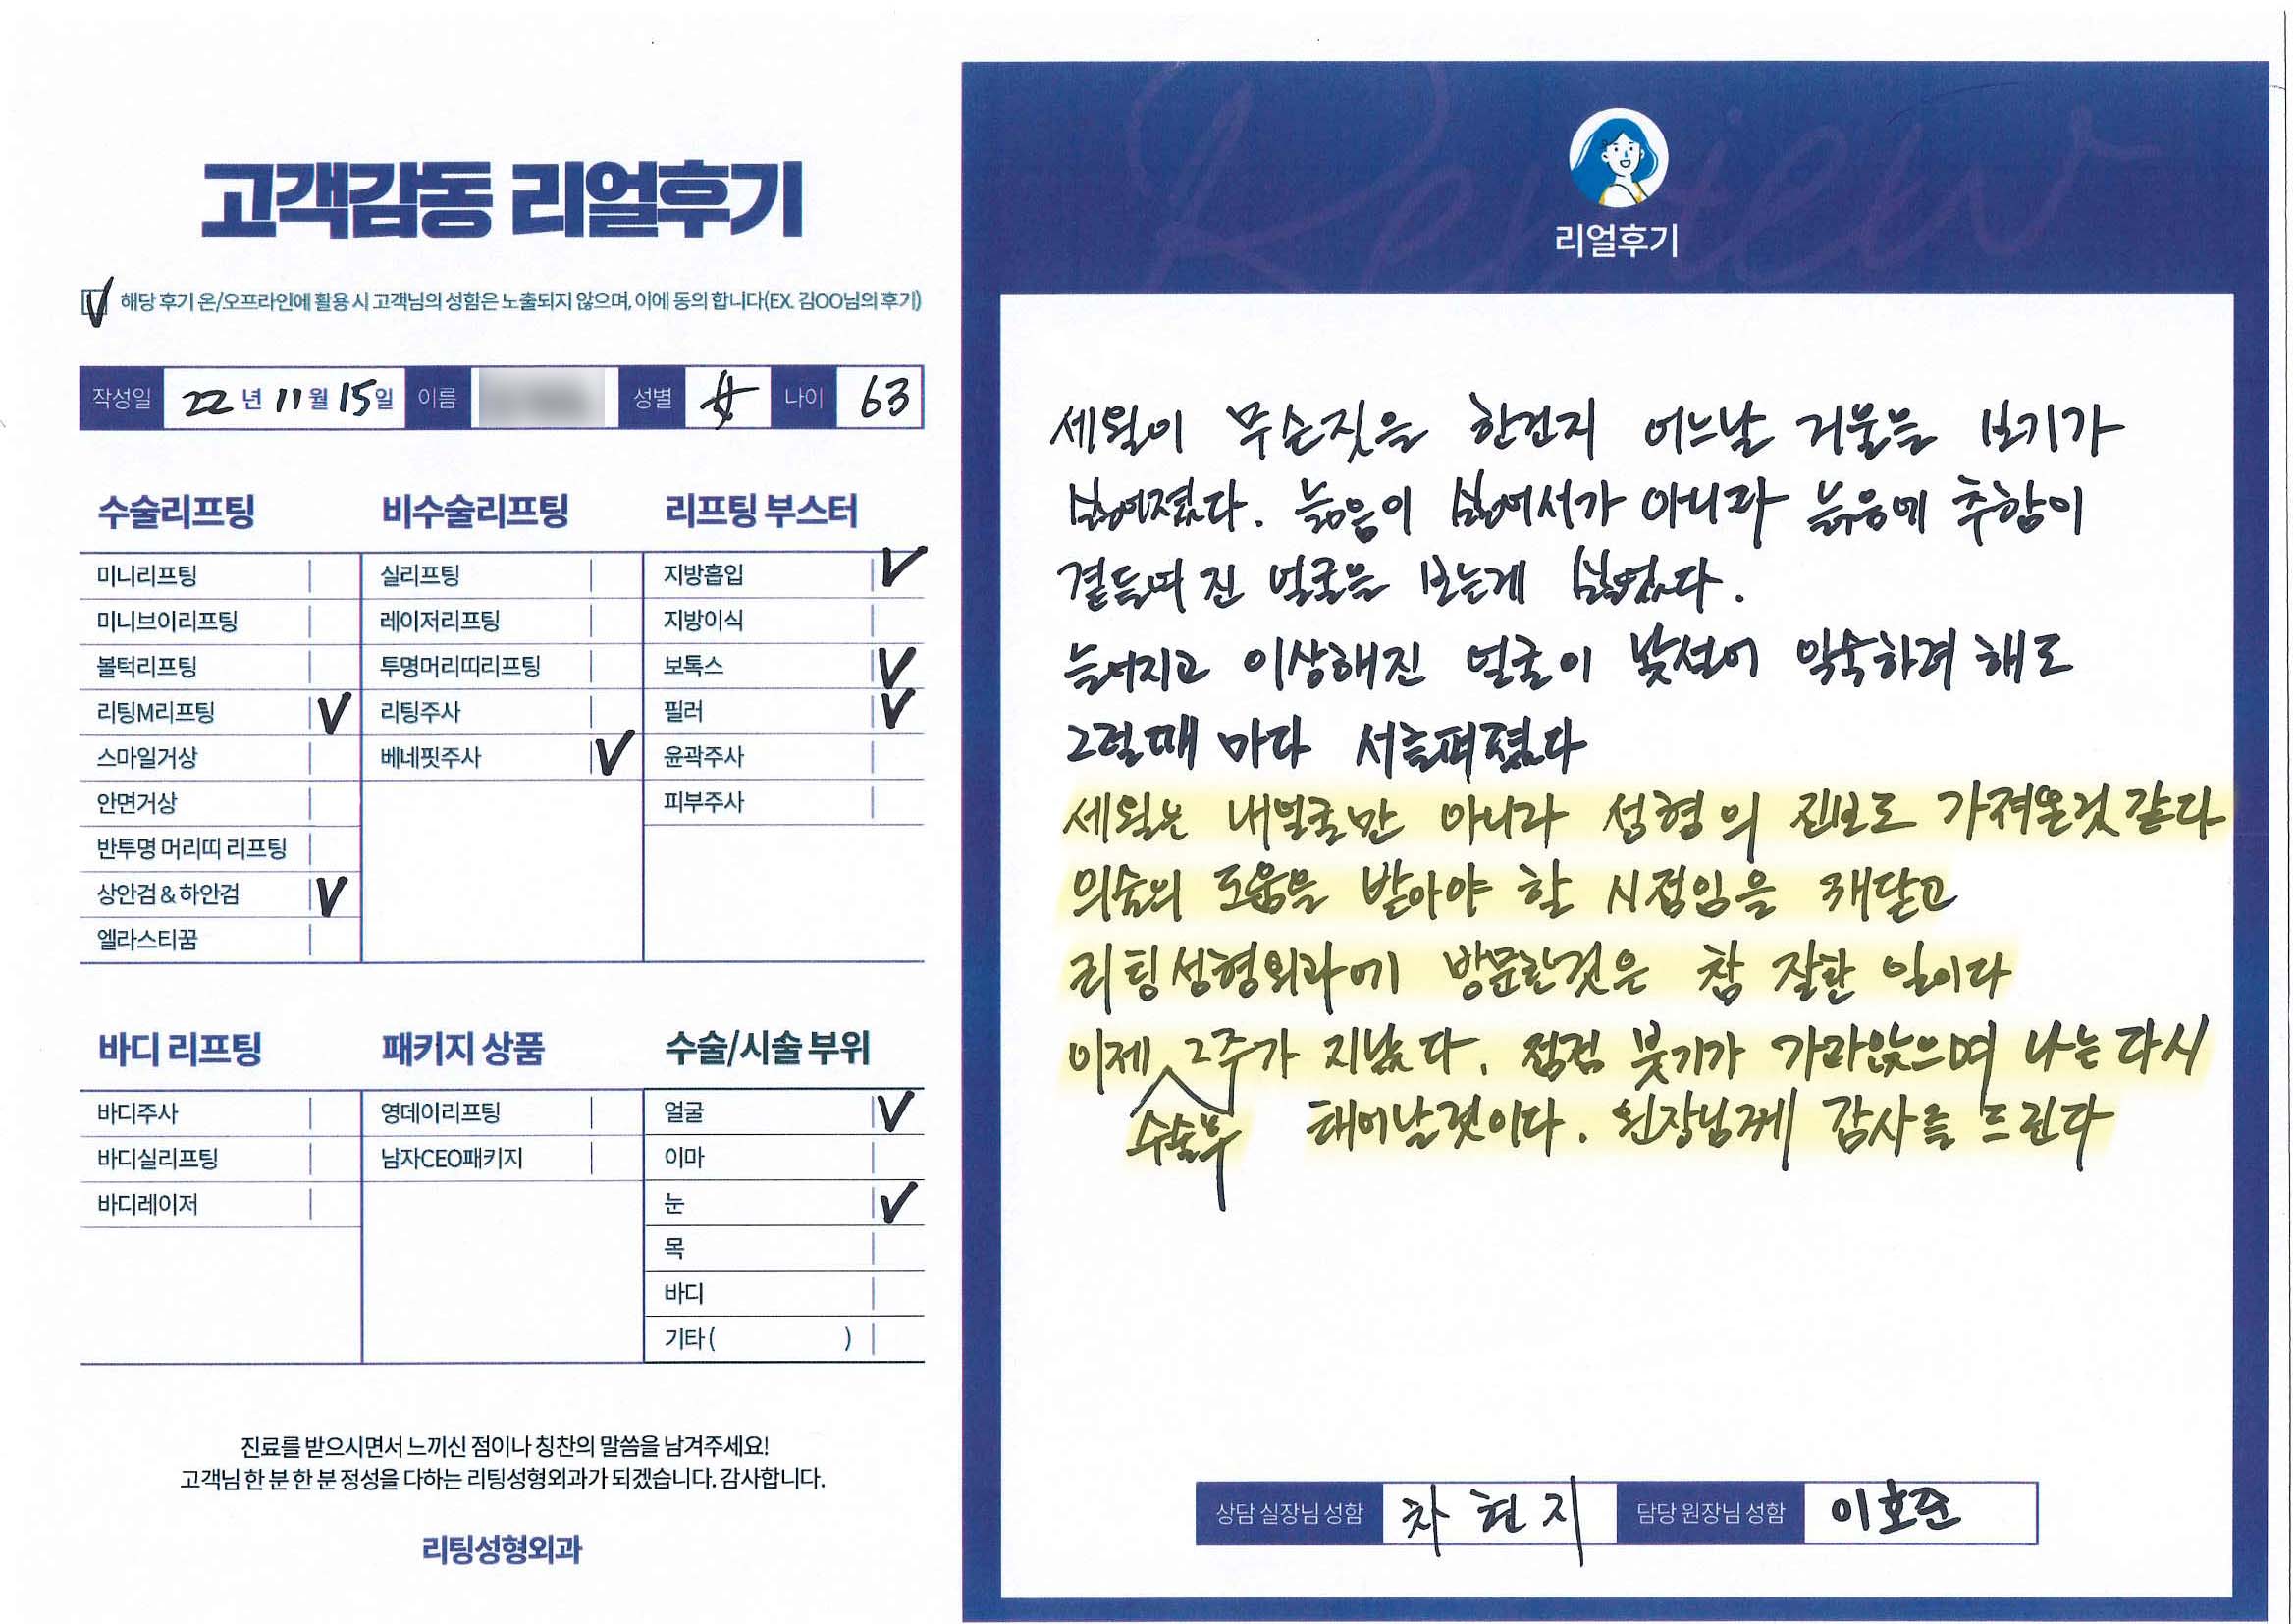 고객감동 리얼후기
해당 후기 온/오프라인에 활용 시 고객님의 성함은 노출되지 않으며, 이에 동의 합니다(EX. 김OO님의 후기)
작성일 22년 11월 15일 이름 성별 女 나이 63
수술리프팅
미니리프팅
미니브이리프팅
볼턱리프팅
리팅M리프팅
스마일거상
안면거상
반투명 머리띠 리프팅
상안검 & 하안검
엘라스티꿈
비수술리프팅
실리프팅
레이저리프팅
투명머리띠리프팅
리팅주사
베네핏주사
리프팅 부스터
지방흡입
지방이식
보톡스
필러
윤곽주사
피부주사
바디 리프팅
바디주사
바디실리프팅
바디레이저
패키지 상품
영데이리프팅
남자CEO패키지
수술/시술 부위
얼굴
이마
눈
목
바디
기타 ( )
진료를 받으시면서 느끼신 점이나 칭찬의 말씀을 남겨주세요!
고객님 한 분 한 분 정성을 다하는 리팅성형외과가 되겠습니다. 감사합니다.
리팅성형외과
Review
리얼후기
세월이 무슨짓을 한건지 어느날 거울을 보기가
싫어졌다. 늙음이 싫어서가 아니라 늙음에 추함이
곁들여 진 얼굴을 보는게 싫었다.
늘어지고 이상해진 얼굴이 낯설어 익숙하려 해도
그럴때 마다 서글퍼졌다
세월는 내얼굴만 아니라 성형의 진보도 가져온것 같다
의술의 도움을 받아야 할 시점임을 깨닫고
리팅성형외과에 방문한것은 참 잘한 일이다
이제 2주가 지났다. 점점 붓기가 가라앉으며 나는 다시
수술후 태어날것이다. 원장님께 감사를 드린다
상담 실장님 성함 차현지 담당 원장님 성함 이호준